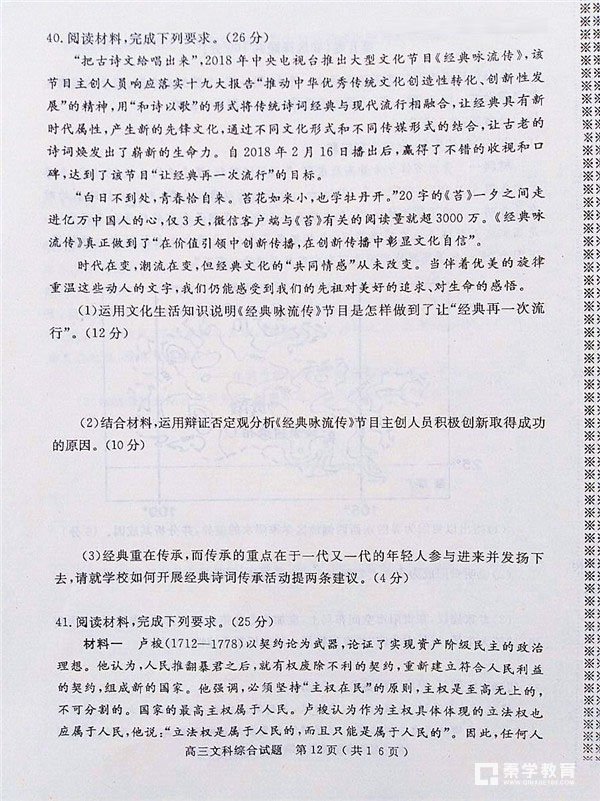 40. 阅读材料,完成下列要求。(26分)
“把古诗文给唱出来”,2018年中央电视台推出大型文化节目《经典咏流传》,该
节目主创人员响应落实十九大报告“推动中华优秀传统文化创造性转化、创新性发
展”的精神,用“和诗以歌”的形式将传统诗词经典与现代流行相融合,让经典具有新
时代属性,产生新的先锋文化,通过不同文化形式和不同传媒形式的结合,让古老的
诗词焕发出了崭新的生命力。自2018年2月16日播出后,赢得了不错的收视和口
碑,达到了该节目“让经典再一次流行”的目标。
“白日不到处,青春恰自来。苔花如米小,也学牡丹开。”20字的《苔》一夕之间走
进亿万中国人的心,仅3天,微信客户端与《苔》有关的阅读量就超3000万。《经典咏
流传》真正做到了“在价值引领中创新传播,在创新传播中彰显文化自信”。
时代在变,潮流在变,但经典文化的“共同情感”从未改变。当伴着优美的旋律
重温这些动人的文字,我们仍能感受到我们的先祖对美好的追求、对生命的感悟。
(1)运用文化生活知识说明《经典咏流传》节目是怎样做到了让“经典再一次流
行”。(12分)
(2)结合材料,运用辩证否定观分析《经典咏流传》节目主创人员积极创新取得成功
的原因。(10分)
(3)经典重在传承,而传承的重点在于一代又一代的年轻人参与进来并发扬下
去,请就学校如何开展经典诗词传承活动提两条建议。(4分)
41. 阅读材料,完成下列要求。(25分)
材料一 卢梭(1712—1778)以契约论为武器,论证了实现资产阶级民主的政治
理想。他认为,人民推翻暴君之后,就有权废除不利的契约,重新建立符合人民利益
的契约,组成新的国家。他强调,必须坚持“主权在民”的原则,主权是至高无上的,
不可分割的。国家的最高主权属于人民。卢梭认为作为主权具体体现的立法权也
应属于人民,他说:“立法权是属于人民的,而且只能是属于人民的”。因此,任何人
高三文科综合试题 第12页(共16页)
秦学教育